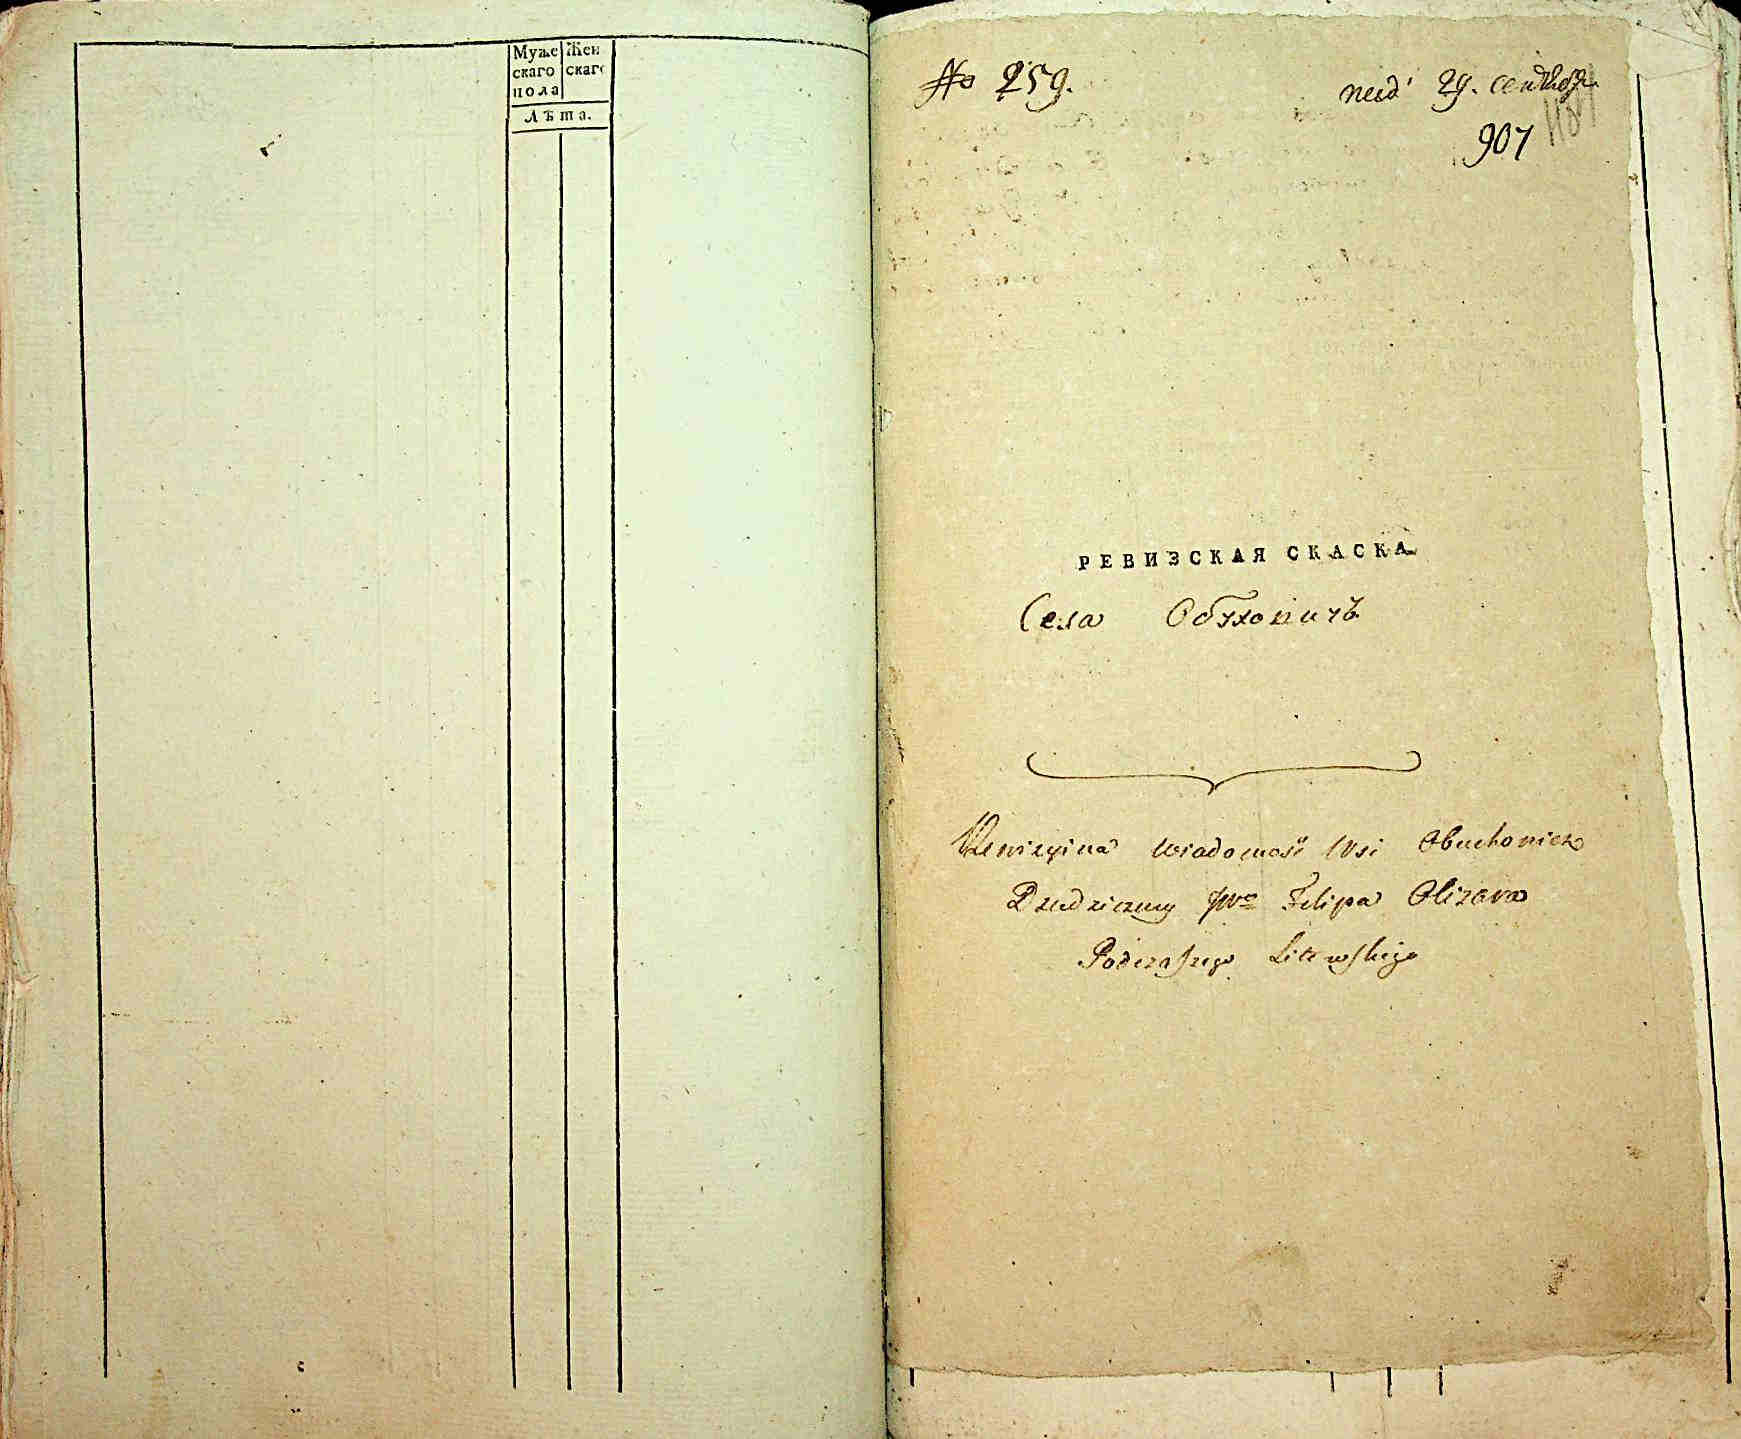 Муже Жен
скаго скаго
пола
Лѣта.
No 259.
29. сентября
907
РЕВИЗСКАЯ СКАСКА
Села Обухович
Rewizyina wiadomość Wsi Obuchowicz
Dziedziczney JWo Filipa Olizara
Podczaszego Litewskiego